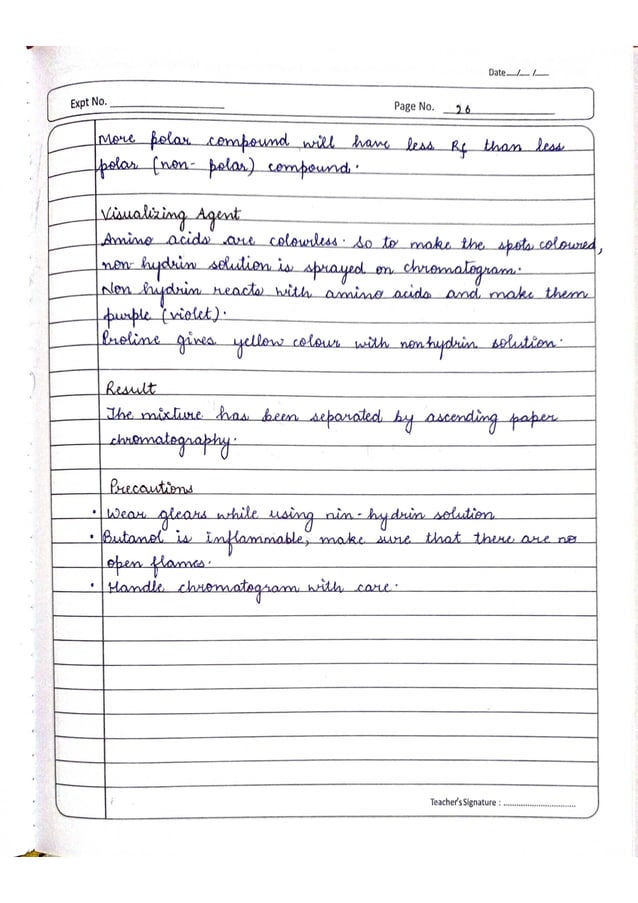 Date__/__/__
Expt No. ____________ Page No. 26
More polar compound will have less Rf than less
polar (non-polar) compound.
Visualizing Agent
Amino acids are colourless. So to make the spots coloured,
non-hydrin solution is sprayed on chromatogram.
Non hydrin reacts with amino acids and make them
purple (violet).
Proline gives yellow colour with nonhydrin solution.
Result
The mixture has been separated by ascending paper
chromatography.
Precautions
• Wear glears while using nin-hydrin solution
• Butanol is inflammable, make sure that there are no
open flames.
• Handle chromatogram with care.
Teacher's Signature : ..............................